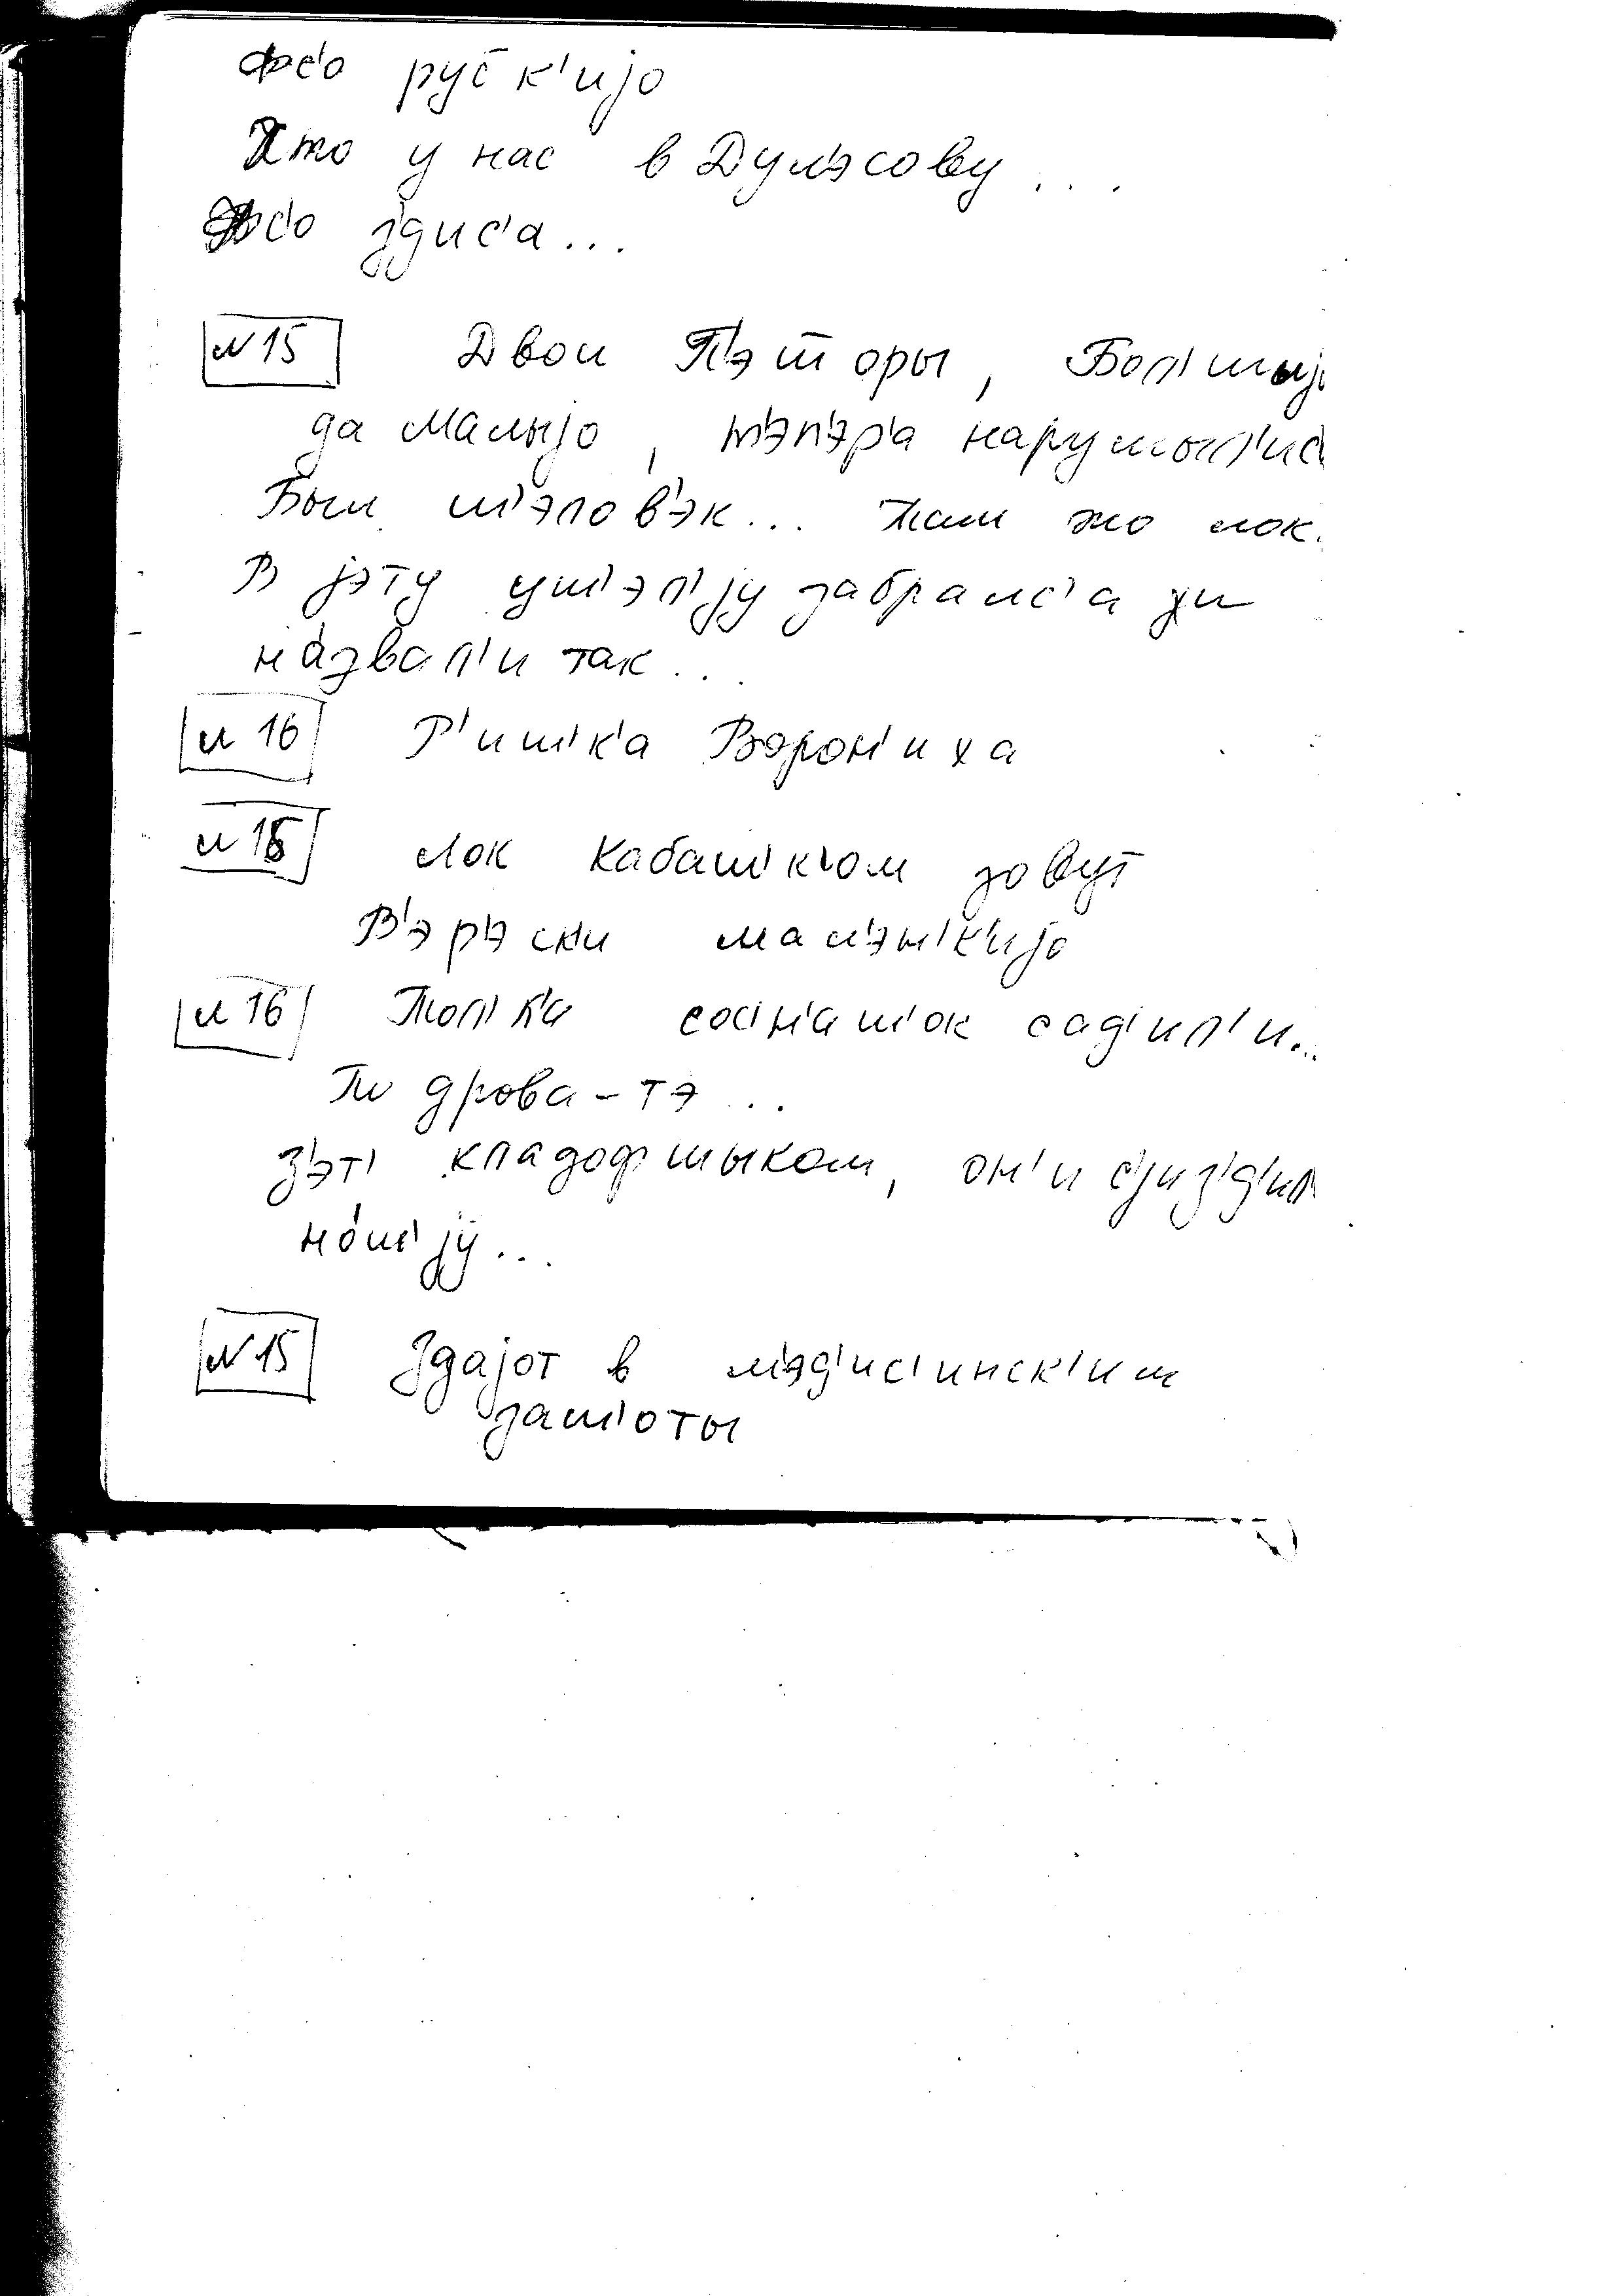 фс'о рус'к'ијо
Хто у нас в Дул'эсову...
фс'о з'д'ис'а...
№15 Двои П'эчоры, Бол'шыј
да Малыјо, т'эп'эр'а нарушыл'ис'
Был ш'элов'эк... там жо лок.
В јэту уш'эл'ју забралс'а ди
на́звал'и так...
№16 Р'иш'к'а Ворон'иха
№16 лок Кабаш'к'ом зовут
В'эр'эски мал'эн'к'ијо
№16 Тол'к'а сос'н'аш'ок сад'ил'и...
По дрова-тэ...
З'эт' кладофшыком, он'и с'јиз'д'ил
но́ш'ју...
№15 Здајот в м'эд'ис'инск'им
заш'оты